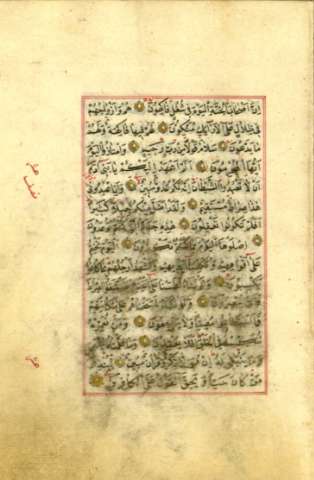 اِنَّ اَصْحَابَ الْجَنَّةِ الْيَوْمَ فِي شُغُلٍ فَاكِهُونَ هُمْ وَاَزْوَاجُهُمْ
فِي ظِلَالٍ عَلَى الْاَرَائِكِ مُتَّكِئُونَ لَهُمْ فِيهَا فَاكِهَةٌ وَلَهُمْ
مَا يَدَّعُونَ سَلَامٌ قَوْلًا مِنْ رَبٍّ رَحِيمٍ وَامْتَازُوا الْيَوْمَ
اَيُّهَا الْمُجْرِمُونَ اَلَمْ اَعْهَدْ اِلَيْكُمْ يَا بَنِي آدَمَ
اَنْ لَا تَعْبُدُوا الشَّيْطَانَ اِنَّهُ لَكُمْ عَدُوٌّ مُبِينٌ وَاَنِ اعْبُدُونِي
هٰذَا صِرَاطٌ مُسْتَقِيمٌ وَلَقَدْ اَضَلَّ مِنْكُمْ جِبِلًّا كَثِيرًا
اَفَلَمْ تَكُونُوا تَعْقِلُونَ هٰذِهِ جَهَنَّمُ الَّتِي كُنْتُمْ تُوعَدُونَ
اِصْلَوْهَا الْيَوْمَ بِمَا كُنْتُمْ تَكْفُرُونَ اَلْيَوْمَ نَخْتِمُ
عَلَى اَفْوَاهِهِمْ وَتُكَلِّمُنَا اَيْدِيهِمْ وَتَشْهَدُ اَرْجُلُهُمْ بِمَا كَانُوا
يَكْسِبُونَ وَلَوْ نَشَاءُ لَطَمَسْنَا عَلَى اَعْيُنِهِمْ فَاسْتَبَقُوا الصِّرَاطَ
فَاَنَّى يُبْصِرُونَ وَلَوْ نَشَاءُ لَمَسَخْنَاهُمْ عَلَى مَكَانَتِهِمْ
فَمَا اسْتَطَاعُوا مُضِيًّا وَلَا يَرْجِعُونَ وَمَنْ نُعَمِّرْهُ
نُنَكِّسْهُ فِي الْخَلْقِ اَفَلَا يَعْقِلُونَ وَمَا عَلَّمْنَاهُ الشِّعْرَ
وَمَا يَنْبَغِي لَهُ اِنْ هُوَ اِلَّا ذِكْرٌ وَقُرْآنٌ مُبِينٌ لِيُنْذِرَ
مَنْ كَانَ حَيًّا وَيَحِقَّ الْقَوْلُ عَلَى الْكَافِرِينَ